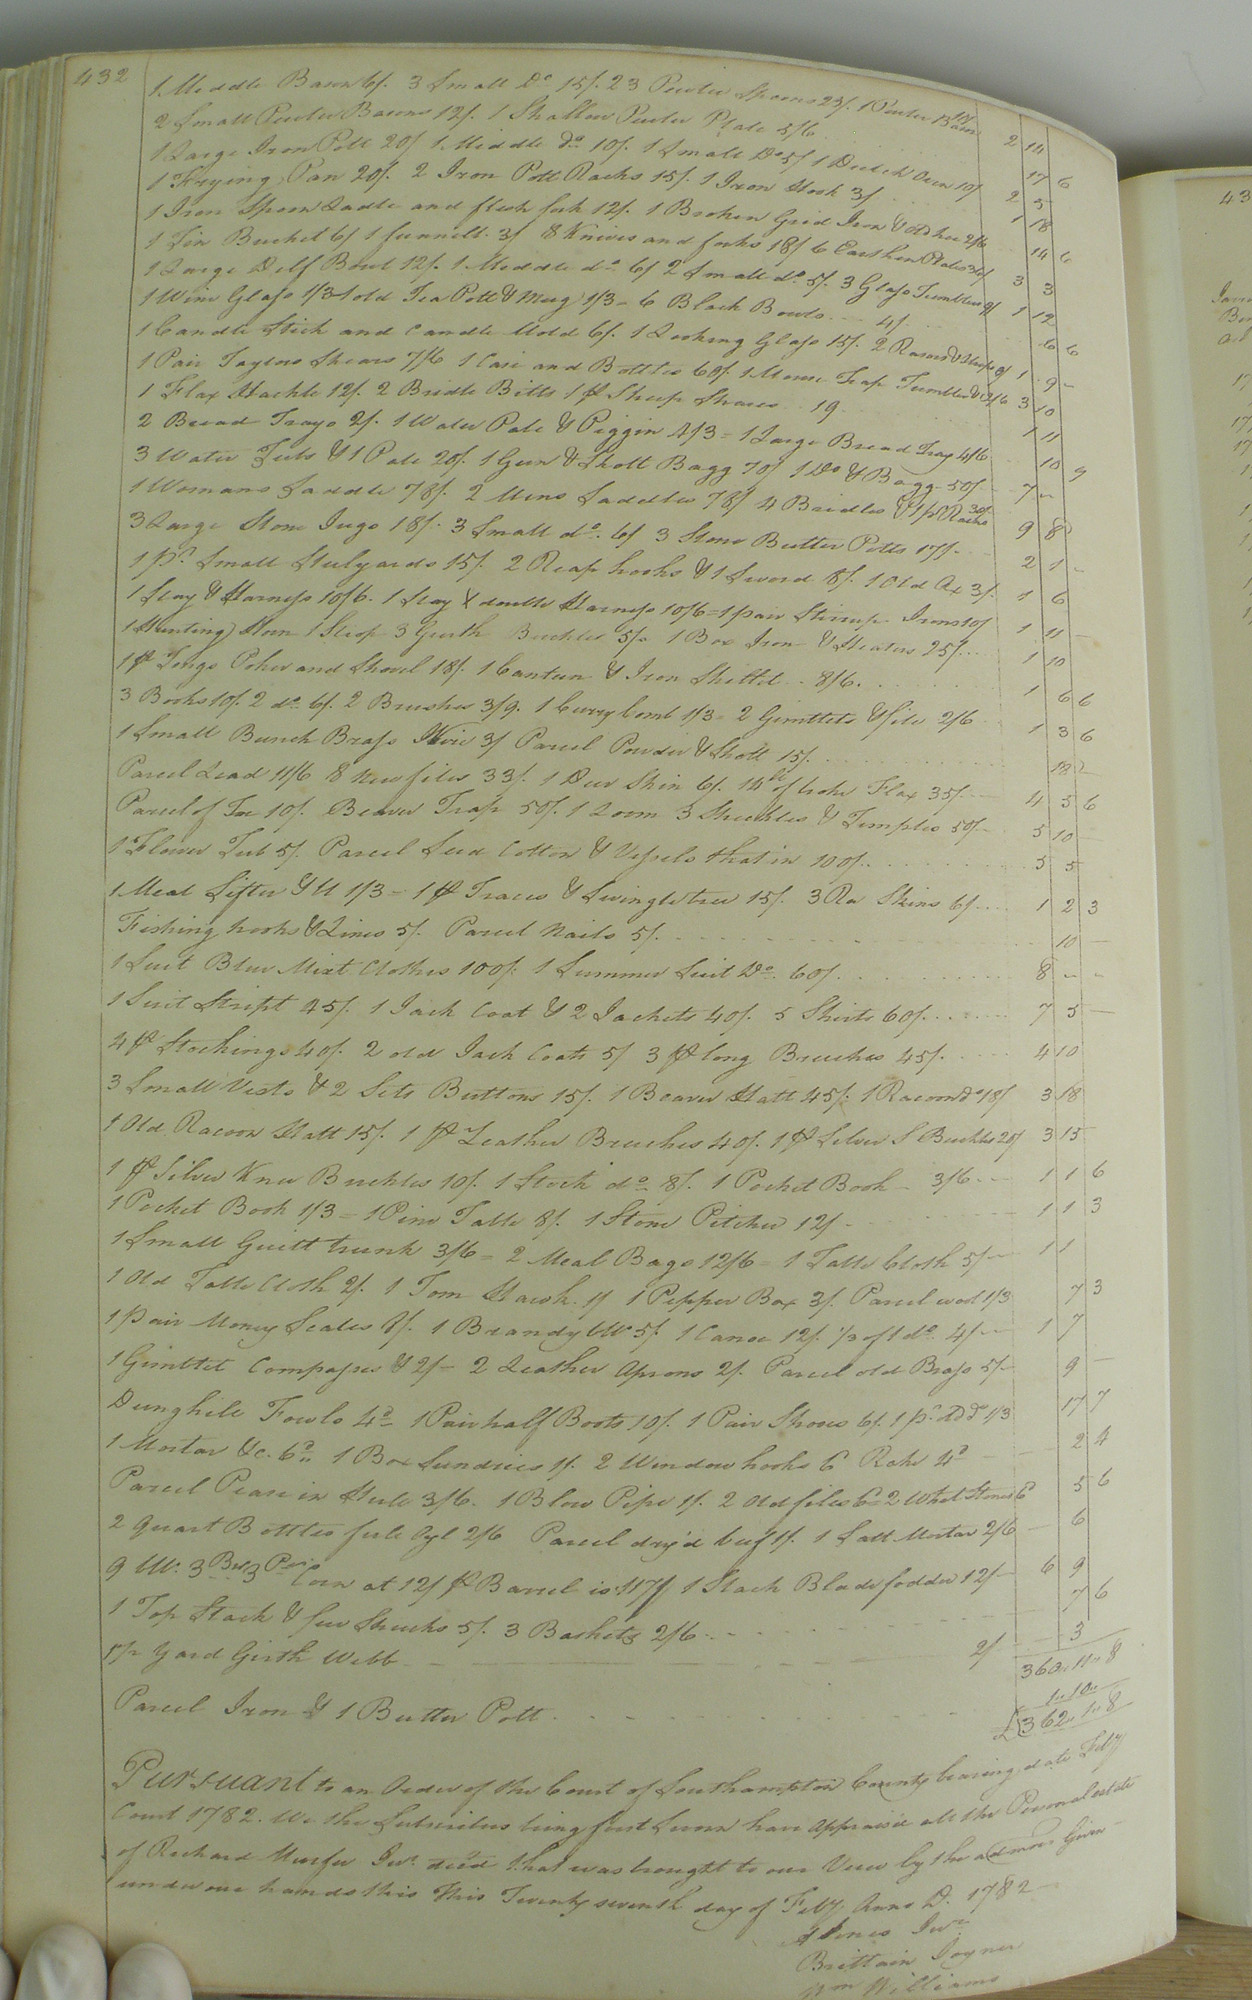 432
1 Meddle Bason 6/. 3 Small Do 15/. 23 Pewter Spoons 23/. 1 Pewter Bason 10/
2 Small Pewter Basons 12/. 1 Shallow Pewter Plate 5/6 2 14
1 Large Iron Pott 20/ 1 Middle do 10/. 1 Small Do 5/ 1 Dutch Oven 10/ 17 6
1 Frying Pan 20/. 2 Iron Pott Racks 15/. 1 Iron Hook 3/ 2 5
1 Iron Spoon Ladle and flesh fork 12/. 1 Broken Grid Iron & 2/6 1 18
1 Tin Bucket 6/ 1 funnell 3/ 8 Knives and forks 18/ 6 Earthen Plates 14 6
1 Large Delf Bowl 12/. 1 Meddle do 6/ 2 Small do 5/. 3 Glass Tumblers 9/ 3 3
1 Wine Glass 1/3 1 old Tea Pott & Mug 1/3 = 6 Black Bowls 4/ 1 12
1 Candle Stick and Candle Mold 6/. 1 Looking Glass 15/. 2 Rasors & 6 6
1 Pair Taylors Shears 7/6 1 Case and Bottles 60/. 1 Mouse Trap Tumbler 2/6 1 9 –
1 Flax Hackle 12/. 2 Bridle Bitts 1 pr Sheep Shears 19 3 10
2 Bread Trays 2/. 1 Water Pale & Piggin 4/3 = 1 Large Bread Tray 4/6 1 11
3 Water Tubs & 1 Pale 20/. 1 Gun & Shott Bagg 70/ 1 Do & Bagg 50/ 10 9
1 Womans Saddle 78/. 2 Mens Saddles 78/ 4 Bridles & 1 pr 30/ 7 –
3 Large Stone Jugs 18/. 3 Small do 6/ 3 Stone Butter Potts 17/. 9 8
1 pr. Small Stulyards 15/. 2 Reap hooks & 1 Sword 8/. 1 Old Ax 3/. 2 1 –
1 Slay & Harness 10/6. 1 Slay & double Harness 10/6 = 1 pair Stirrup Irons 10/ 1 6
1 Hunting Horn 1 Strop 3 Girth Buckles 5/= 1 Box Iron & Heaters 25/. 1 11 –
1 pr Tongs Poker and Shovel 18/. 1 Canteen & Iron Skilled 8/6. 1 10
3 Books 10/. 2 do 6/. 2 Brushes 3/9. 1 Currycomb 1/3 = 2 Gimblets & file 2/6 1 6 6
1 Small Bunch Brass Wire 3/ Parcel Powder & Shott 15/. 1 3 6
Parcel Lead 11/6 8 New files 33/. 1 Deer Skin 6/. 14 lb of broke Flax 35/. 18 –
Parcel of Toe 10/. Beaver Trap 50/. 1 Loom 3 Shuckles & Temples 50/. 4 5 6
1 Flower Tub 5/. Parcel Seed Cotton & Vessels that in 100/. 5 10 –
1 Meal Sifter &tt 1/3 – 1 pr Traces & Swingletree 15/. 3 Ra Skins 6/. 5 5
Fishing hooks & Lines 5/. Parcel Nails 5/. 1 2 3
1 Suit Blue Mixt Clothes 100/. 1 Summer Suit Do. 60/. 10 –
1 Suit Stript 45/. 1 Jack Coat & 2 Jackets 40/. 5 Shirts 60/. 8 – –
4 pr Stockings 40/. 2 old Jack Coats 5/ 3 pr long Breeches 45/. 7 5 –
3 Small Vests & 2 Sets Buttons 15/. 1 Beaver Hatt 45/. 1 Racoon do 18/ 4 10
1 Old Racoon Hatt 15/. 1 pr Leather Breeches 40/. 1 pr Silver S Buckles 20/ 3 18
1 pr Silver Knee Buckles 10/. 1 Stock do 8/. 1 Pocket Book – 3/6 3 15
1 Pocket Book 1/3 = 1 Pine Table 8/. 1 Stone Pitcher 12/ 1 1 6
1 Small Guilt trunk 3/6 = 2 Meal Bags 12/6 = 1 Table Cloth 5/ 1 1 3
1 Old Table Cloth 2/. 1 Tom Hawk 1/ 1 Pepper Box 3/. Parcel wool 1/3 1 1
1 pair Money Scales 8/. 1 Brandy 5/. 1 Canoe 12/. 1/3 of 1 do 4/ 7 3
1 Gimblet Compasses & 2/– 2 Leather Aprons 2/. Parcel old Brass 5/– 1 7
Dunghile Fowls 4d 1 Pair half Boots 10/. 1 Pair Shoes 6/. 1 pr. Old do 1/3 9 –
1 Mortar &c. 6d 1 Box Sundries 1/. 2 Window hooks 6 Rake 4d 17 7
Parcel Pease in Hull 3/6. 1 Blow Pipe 1/. 2 Old files 6d 2 Whet Stones 6d 2 4
2 Quart Bottles full Oyl 2/6 Parcel dry'd beef 1/. 1 Salt Mortar 2/6 5 6
9 3 Bus. 3 Corn at 12/ pr Barrel is 117/ 1 Stack Blade fodder 12/ 6
1 Top Stack & few Shucks 5/. 3 Baskets 2/6 6 9
Yard Girth Webb 2/ 7 6
Parcel Iron & 1 Butter Pott 3
360.. 11.. 8
1.. 10..
£362.. 1.. 8
Pursuant to an Order of the Court of Southampton County bearing date Feby
Court 1782. We the Subscribers being first Sworn have appraised all the Personal estate
of Richard Murfee Junr. deced that was brought to our View by the admors Given
under our hands this this Twenty seventh day of Feby Anno D. 1782
Jones Junr
Brittain Joyner
Wm Williams
43